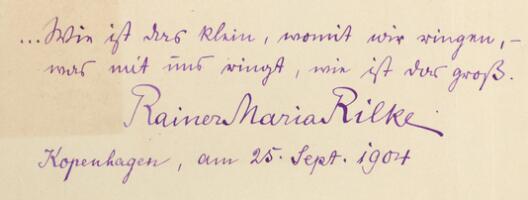 ...Wie ist das klein, womit wir ringen, –
was mit uns ringt, wie ist das groß.
Rainer Maria Rilke
Kopenhagen, am 25. Sept. 1904